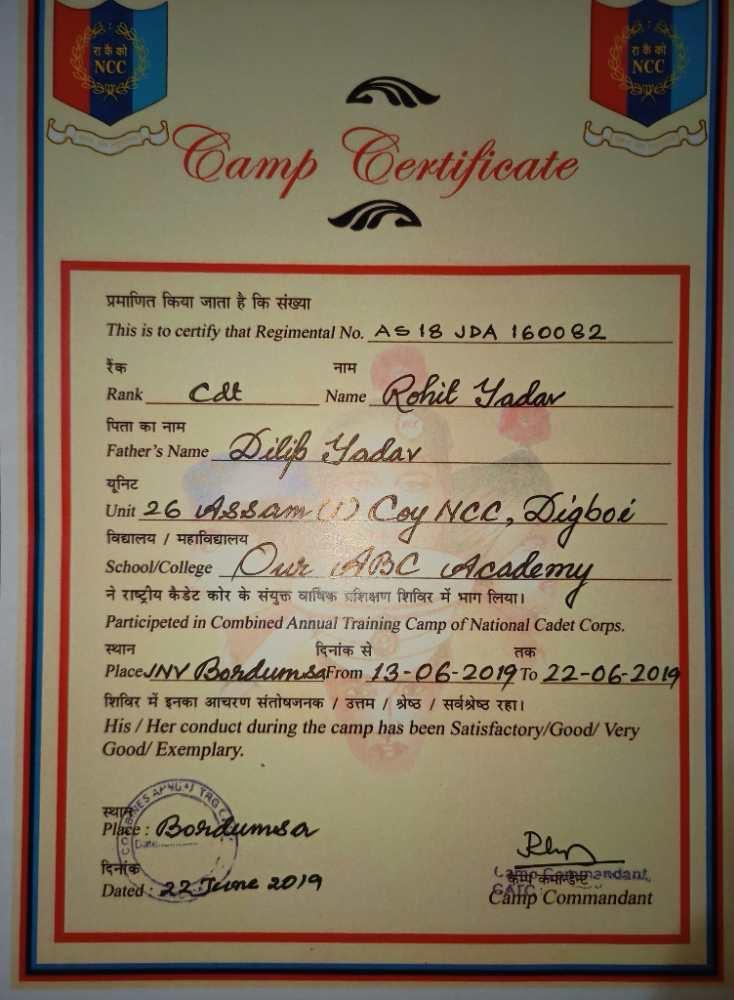 रा कै को
NCC
रा कै को
NCC
Camp Certificate
प्रमाणित किया जाता है कि संख्या
This is to certify that Regimental No. AS 18 JDA 160082
रैंक नाम
Rank Cdt Name Rohit Yadav
पिता का नाम
Father's Name Dilip Yadav
यूनिट
Unit 26 Assam (I) Coy NCC, Digboi
विद्यालय / महाविद्यालय
School/College Our ABC Academy
ने राष्ट्रीय कैडेट कोर के संयुक्त वार्षिक प्रशिक्षण शिविर में भाग लिया।
Participeted in Combined Annual Training Camp of National Cadet Corps.
स्थान दिनांक से तक
Place JNV Bordumsa From 13-06-2019 To 22-06-2019
शिविर में इनका आचरण संतोषजनक / उत्तम / श्रेष्ठ / सर्वश्रेष्ठ रहा।
His / Her conduct during the camp has been Satisfactory/Good/ Very
Good/ Exemplary.
स्थान
Place : Bordumsa
Date
दिनांक
Dated : 22 June 2019
Camp Commandant
कैम्प कमान्डेन्ट
CATC
Camp Commandant